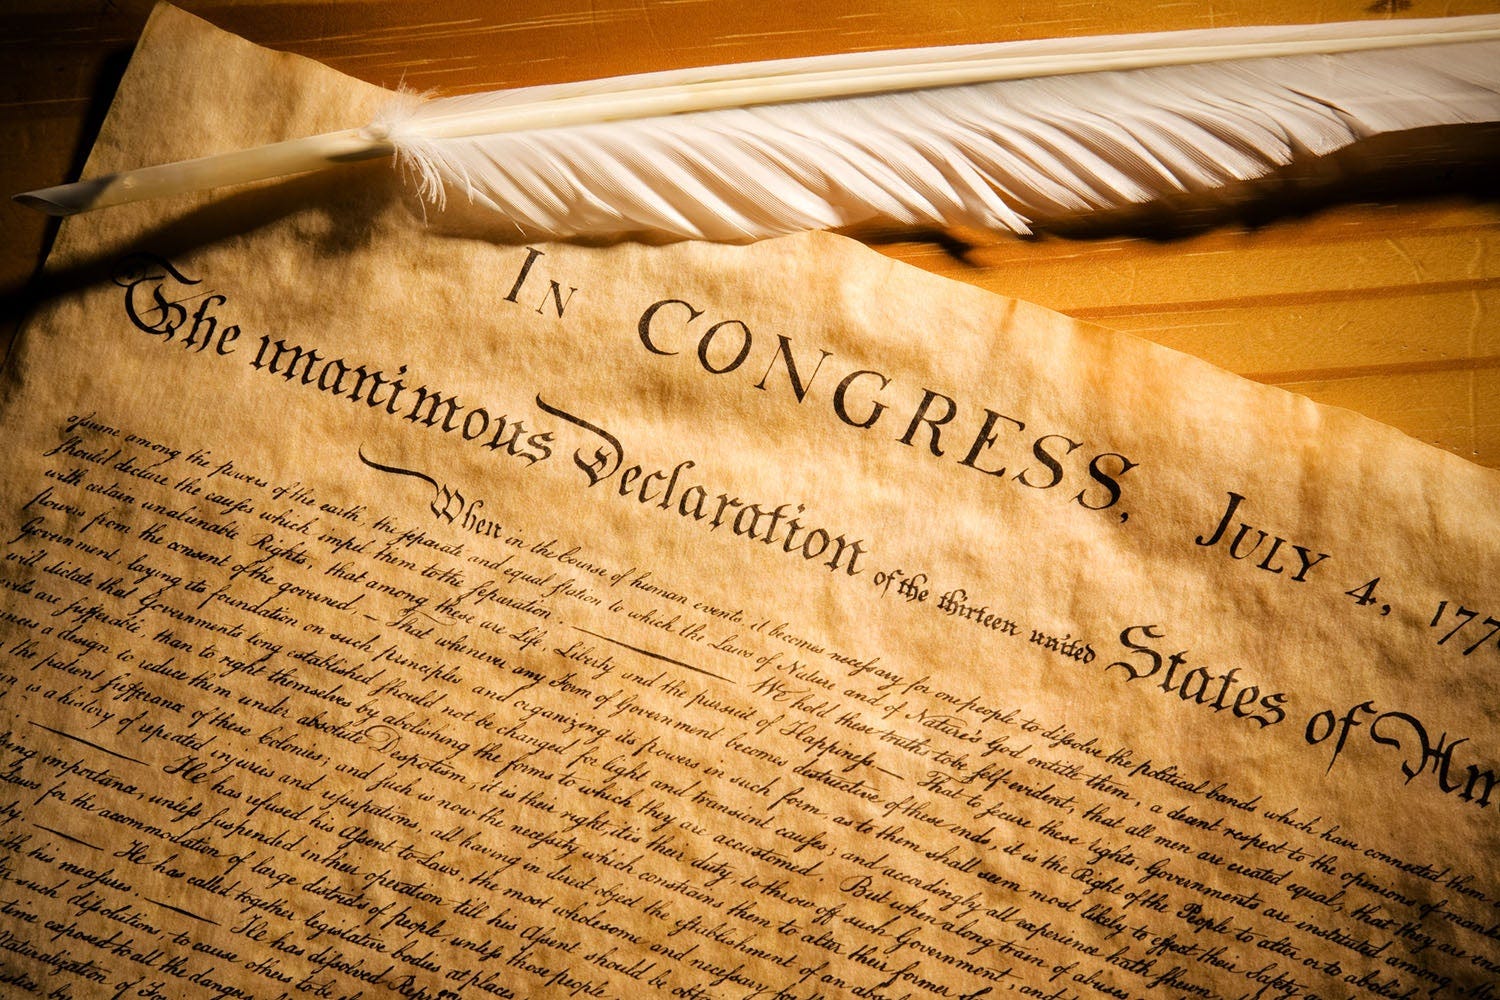 In CONGRESS, July 4, 177
The unanimous Declaration of the thirteen united States of Am
When in the Course of human events, it becomes necessary for one people to dissolve the political bands which have connected them
assume among the powers of the earth, the separate and equal station to which the Laws of Nature and of Nature's God entitle them, a decent respect to the opinions of mank
should declare the causes which impel them to the separation. We hold these truths to be self-evident, that all men are created equal, that they are endo
with certain unalienable Rights, that among these are Life, Liberty and the pursuit of Happiness.— That to secure these rights, Governments are instituted among
powers from the consent of the governed, — That whenever any Form of Government becomes destructive of these ends, it is the Right of the People to alter or to abolish
Government, laying its foundation on such principles and organizing its powers in such form, as to them shall seem most likely to effect their Safety
will dictate that Governments long established should not be changed for light and transient causes; and accordingly all experience hath shewn
are sufferable, than to right themselves by abolishing the forms to which they are accustomed. But when a long train of abuses
a design to reduce them under absolute Despotism, it is their right, it is their duty, to throw off such Government, and
the patient sufferance of these Colonies; and such is now the necessity which constrains them to alter their former
is a history of repeated injuries and usurpations, all having in direct object the establishment of an
He has refused his Assent to Laws, the most wholesome and necessary for
importance, unless suspended in their operation till his Assent should be
Laws for the accommodation of large districts of people, unless those people
He has called together legislative bodies at places
his measures. — He has dissolved Repr
such dissolutions, to cause others to be
time exposed to all the dangers
Naturalization of